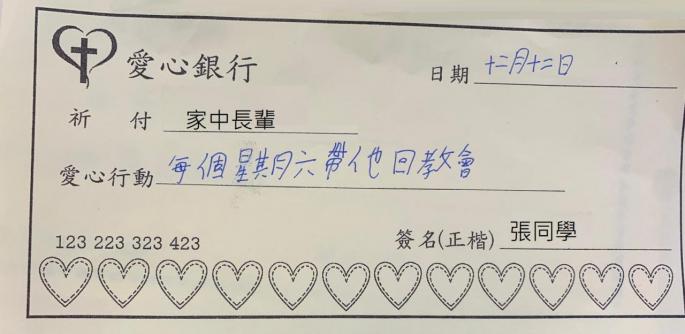 愛心銀行 日期 十二月十二日
祈 付 家中長輩
愛心行動 每個星期六帶他回教會
123 223 323 423 簽名(正楷) 張同學